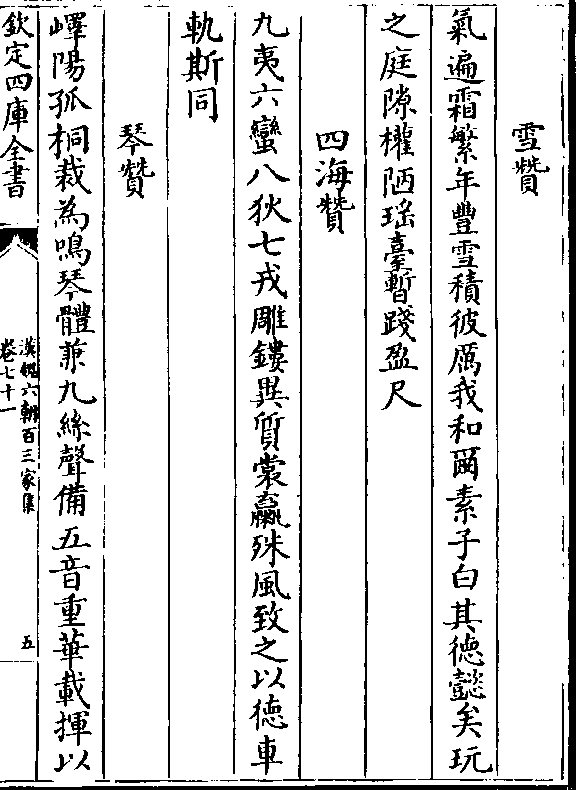 雪贊
氣遍霜繁年豐雪積彼厲我和爾素子白其德懿矣玩
之庭隙權陋瑶臺暫踐盈尺
四海贊
九夷六蠻八狄七戎雕鏤異質裳羸殊風致之以德車
軌斯同
琴贊
嶧陽孤桐裁為鳴琴體兼九絲聲備五音重華載揮以
欽定四庫全書
漢魏六朝百三家集
卷七十一
五